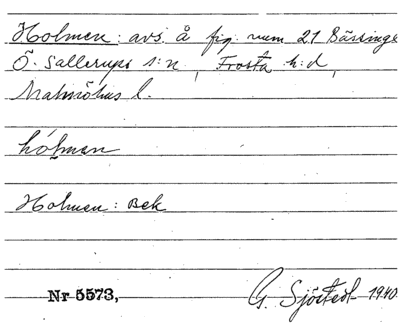 Holmen: avs. å fig. num 21 Bässinge
Ö. Sallerups s:n, Frosta h:d,
Malmöhus l.
hólmen
Holmen: Bek
Nr 5573,
G. Sjöstedt 1940.